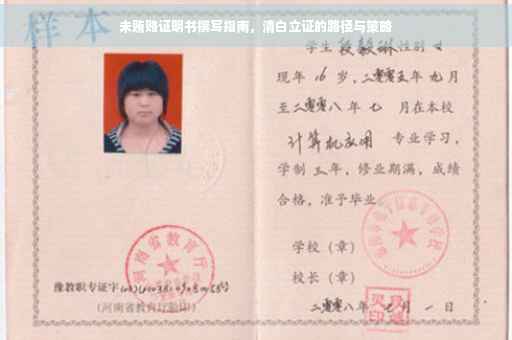 未贿赂证明书撰写指南，清白立证的路径与策略
样本
学生段毅琳性别女
现年16岁，二零零五年九月
至二零零八年七月在本校
计算机应用 专业学习，
学制三年，修业期满，成绩
合格，准予毕业。
学校（章）
校长（章）
二零零八年七月一日
河南省教育厅
豫教职专证字
（河南省教育厅验印）